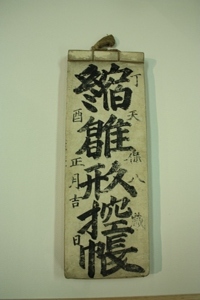 丁天保八歳
縮雛形控帳
酉正月吉日